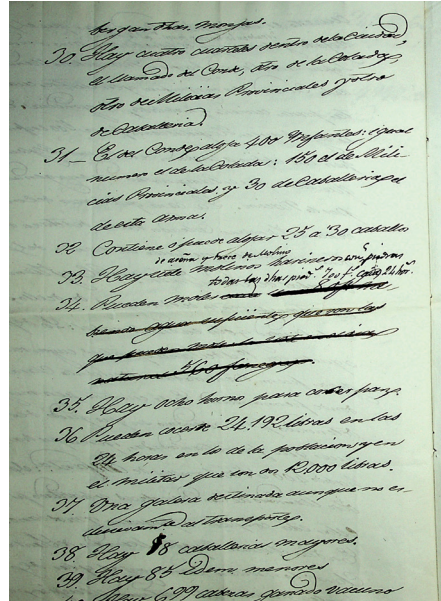 tengan otras monjas.
30. Hay cuatro cuarteles dentro de la Ciudad,
el llamado del Conde, otro de la Colada,
otro de Milicias Provinciales y otro
de Caballeria.
31_ El del Conde aloja 400 Infantes: igual
numero el de la Colada: 150 el de Mili-
cias Provinciales, y 30 de Caballeria el
de esta arma.
32 Contiene ó puede alojar 25 a 30 caballos
de aceña y trece de Molino
33. Hay siete molinos harineros con piedras
todas las dhas pied.s 700 f. cada 24 hor.s
34. Pueden moler
35. Hay ocho hornos para cocer pan.
36 Pueden cocerse 24.192 libras en las
24 horas en lo de la poblacion, y en
el militar que es uno 12.000 libras.
37 Una galera destinada aunque no es-
clusivam.te al transporte.
38. Hay 88 caballerias mayores.
39. Hay 85 Idem menores
699 cabezas ganado vacuno